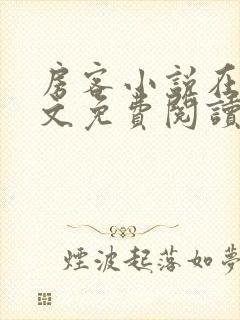 房客小说在
文免費閱讀
煙波起落如夢